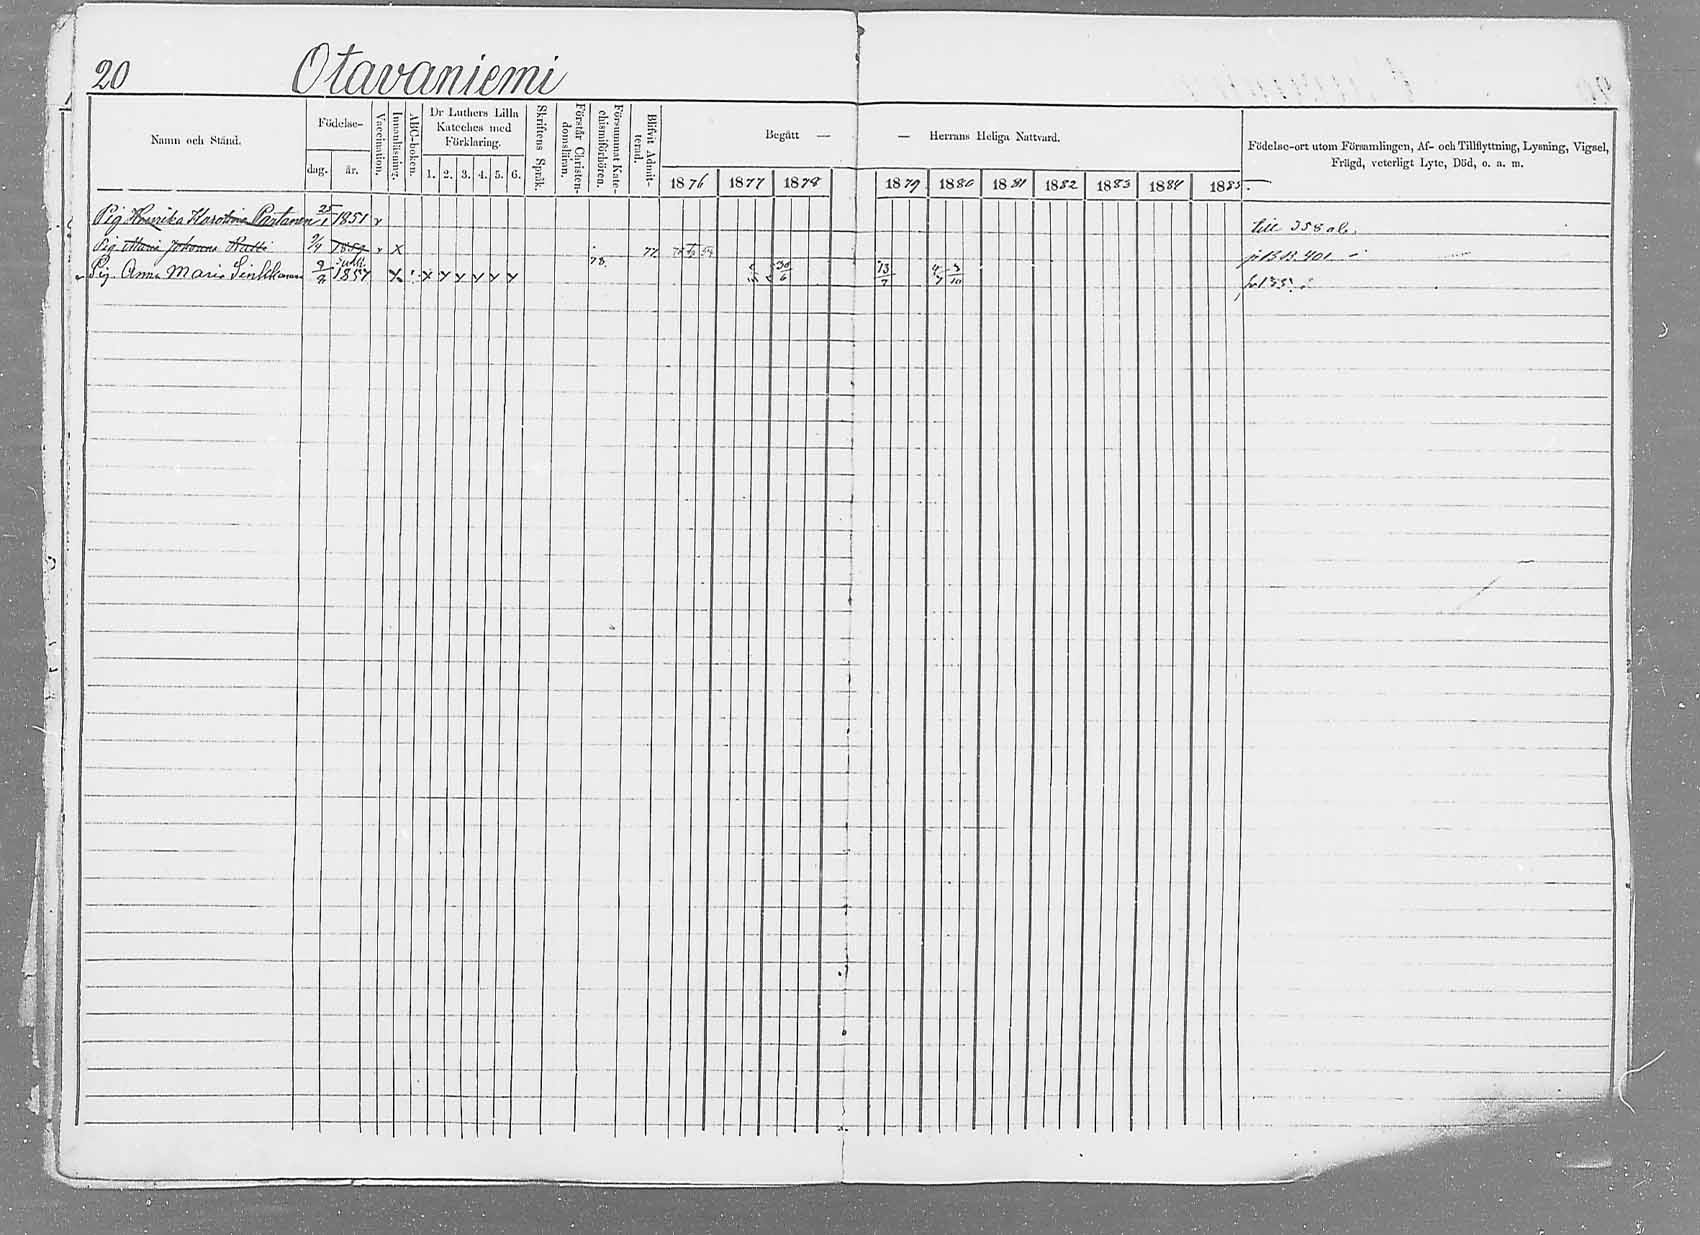 20 Otavaniemi
Namn och Stånd.
Födelse-
dag. år.
Vaccination.
Innanläsning.
ABC-boken.
Dr Luthers Lilla
Kateches med
Förklaring.
1. 2. 3. 4. 5. 6.
Skriftens Språk.
Förstår Christen-
domsläran.
Försummat Kate-
chismiförhören.
Blifvit Admit-
terad.
Begått — — Herrans Heliga Nattvard.
1876 1877 1878 1879 1880 1881 1882 1883 1884 1885
Födelse-ort utom Församlingen, Af- och Tillflyttning, Lysning, Vigsel,
Frägd, veterligt Lyte, Död, o. a. m.
Pig. Karolina Partanen 25/1 1851 v till 358
Pig. Maria Johanna v x 78. 77 401
Pig. Anna Maria 1857 x x x x x x 30/6 13/7 3/10